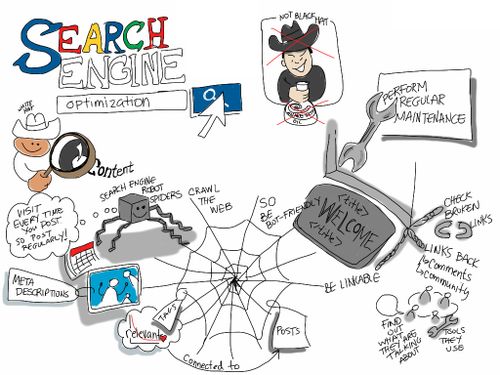 SEARCH
ENGINE
optimization
NOT BLACK HAT
WHITE
HAT
Content
PERFORM
REGULAR
MAINTENANCE
SEARCH ENGINE
ROBOT
SPIDERS
CRAWL
THE
WEB
SO
BE
BOT-FRIENDLY
<title>
WELCOME
</title>
CHECK
BROKEN
LINKS
VISIT
EVERY TIME
YOU POST
SO POST
REGULARLY!
LINKS BACK
Comments
Community
BE LINKABLE
META
DESCRIPTIONS
TAGS
relevant
POSTS
Connected to
FIND
OUT
WHAT
THEY ARE
TALKING
ABOUT
TOOLS
THEY
USE